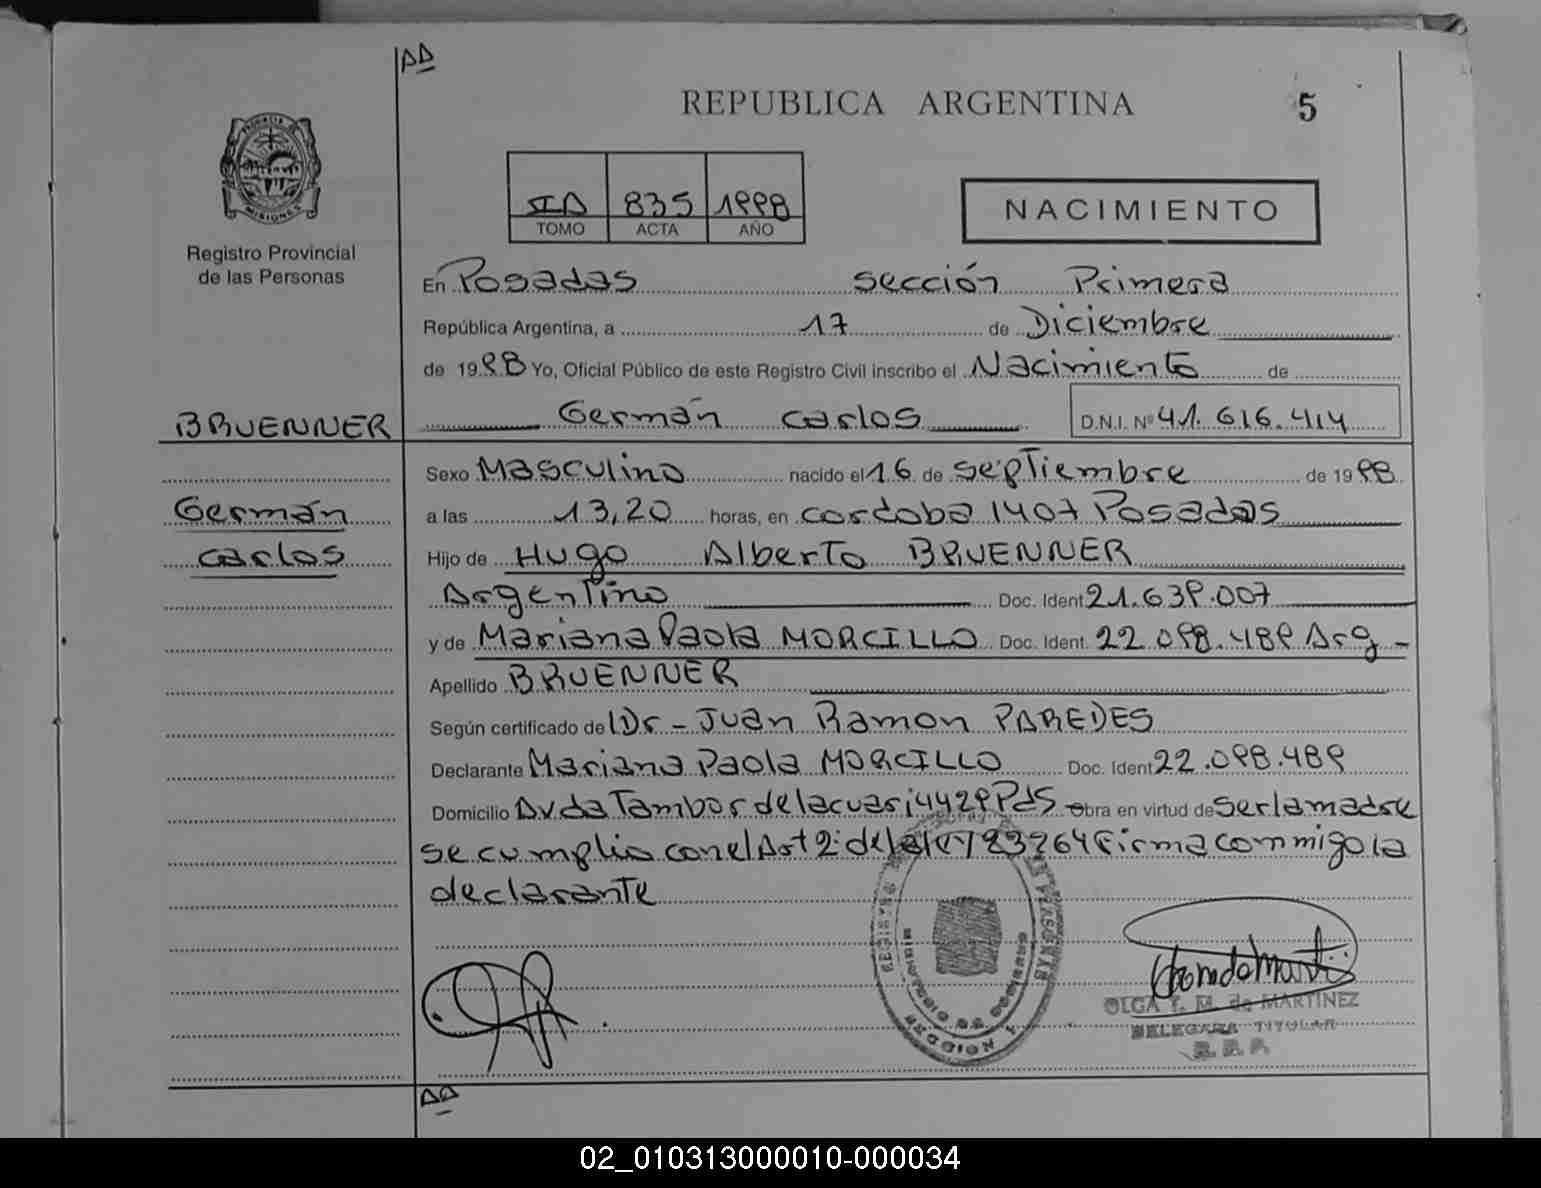 AA
REPUBLICA ARGENTINA 5
PROVINCIA DE
MISIONES
Registro Provincial
de las Personas
835 1998
TOMO ACTA AÑO
NACIMIENTO
En Posadas sección Primera
República Argentina, a 17 de Diciembre
de 1998 Yo, Oficial Público de este Registro Civil inscribo el Nacimiento de
BRUENNER
Germán Carlos D.N.I. Nº 41.616.414
Sexo Masculino nacido el 16 de septiembre de 1998
Germán
a las 13,20 horas, en cordoba 1407 Posadas
Carlos
Hijo de Hugo Alberto BRUENNER
Argentino Doc. Ident 21.639.007
y de Mariana Paola MORCILLO Doc. Ident. 22.098.489 Arg -
Apellido BRUENNER
Según certificado de Dr - Juan Ramon PAREDES
Declarante Mariana Paola MORCILLO Doc. Ident 22.098.489
Domicilio Avda Tambor de Tacuari 4429 Pds Obra en virtud de ser la madre
se cumplio con el Art 2: de la ley 23264 Firma commigo la
declarante
REGISTRO DE LAS PERSONAS
MINISTERIO DE GOBIERNO
SECCION 1
OLGA T. M. de MARTINEZ
DELEGADA TITULAR
R. P. P.
AA
02_010313000010-000034